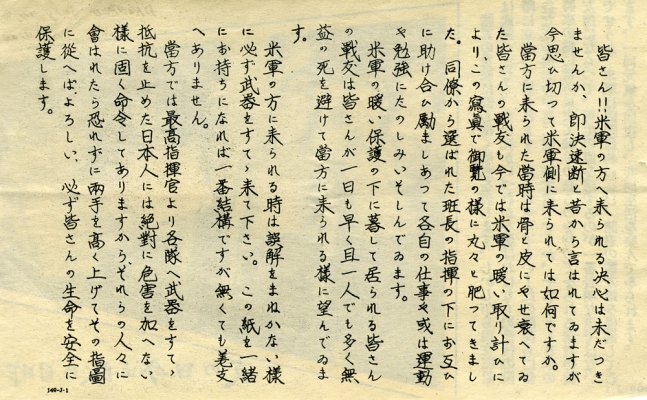 皆さん!!米軍の方へ来られる決心は未だつき
ませんか、即決速断と昔から言はれてゐますが
今思ひ切つて米軍側に来られては如何ですか。
當方に来られた當時は骨と皮にやせ衰へてゐ
た皆さんの戦友も今では米軍の暖い取り計ひに
より、この寫眞で御覽の様に丸々と肥つてきまし
た。同僚から選ばれた班長の指揮の下にお互ひ
に助け合ひ勵ましあつて各自の仕事や或は運動
や勉強にたのしみいそしんでゐます。
米軍の暖い保護の下に暮して居られる皆さん
の戦友は皆さんが一日も早く且一人でも多く無
益の死を避けて當方に来られる様に望んでゐま
す。
米軍の方に来られる時は誤解をまねかない様
に必ず武器をすてゝ来て下さい。この紙を一緒
にお持ちになれば一番結構ですが無くても差支
へありません。
當方では最高指揮官より各隊へ武器をすてゝ
抵抗を止めた日本人には絶對に危害を加へない
様に固く命令してありますから、それらの人々に
會はれたら恐れずに両手を高く上げてその指圖
に從へばよろしい、必ず皆さんの生命を安全に
保護します。
149-J-1